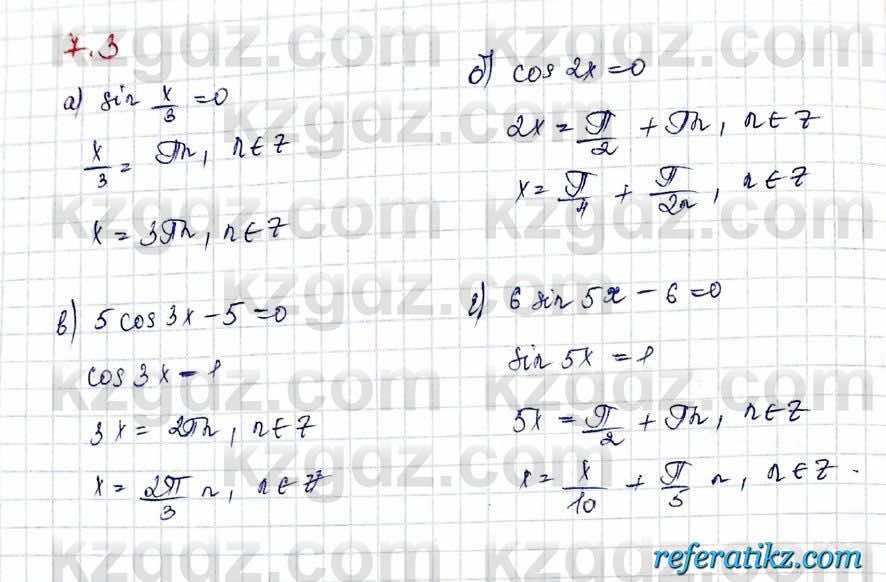 7.3
а) sin x/3 = 0
x/3 = πn, n∈Z
x = 3πn, n∈Z
б) cos 2x = 0
2x = π/2 + πn, n∈Z
x = π/4 + π/2n, n∈Z
в) 5 cos 3x - 5 = 0
cos 3x = 1
3x = 2πn, n∈Z
x = 2π/3 n, n∈Z
г) 6 sin 5x - 6 = 0
sin 5x = 1
5x = π/2 + πn, n∈Z
x = x/10 + π/5 n, n∈Z.
kzgdz.com
referatikz.com